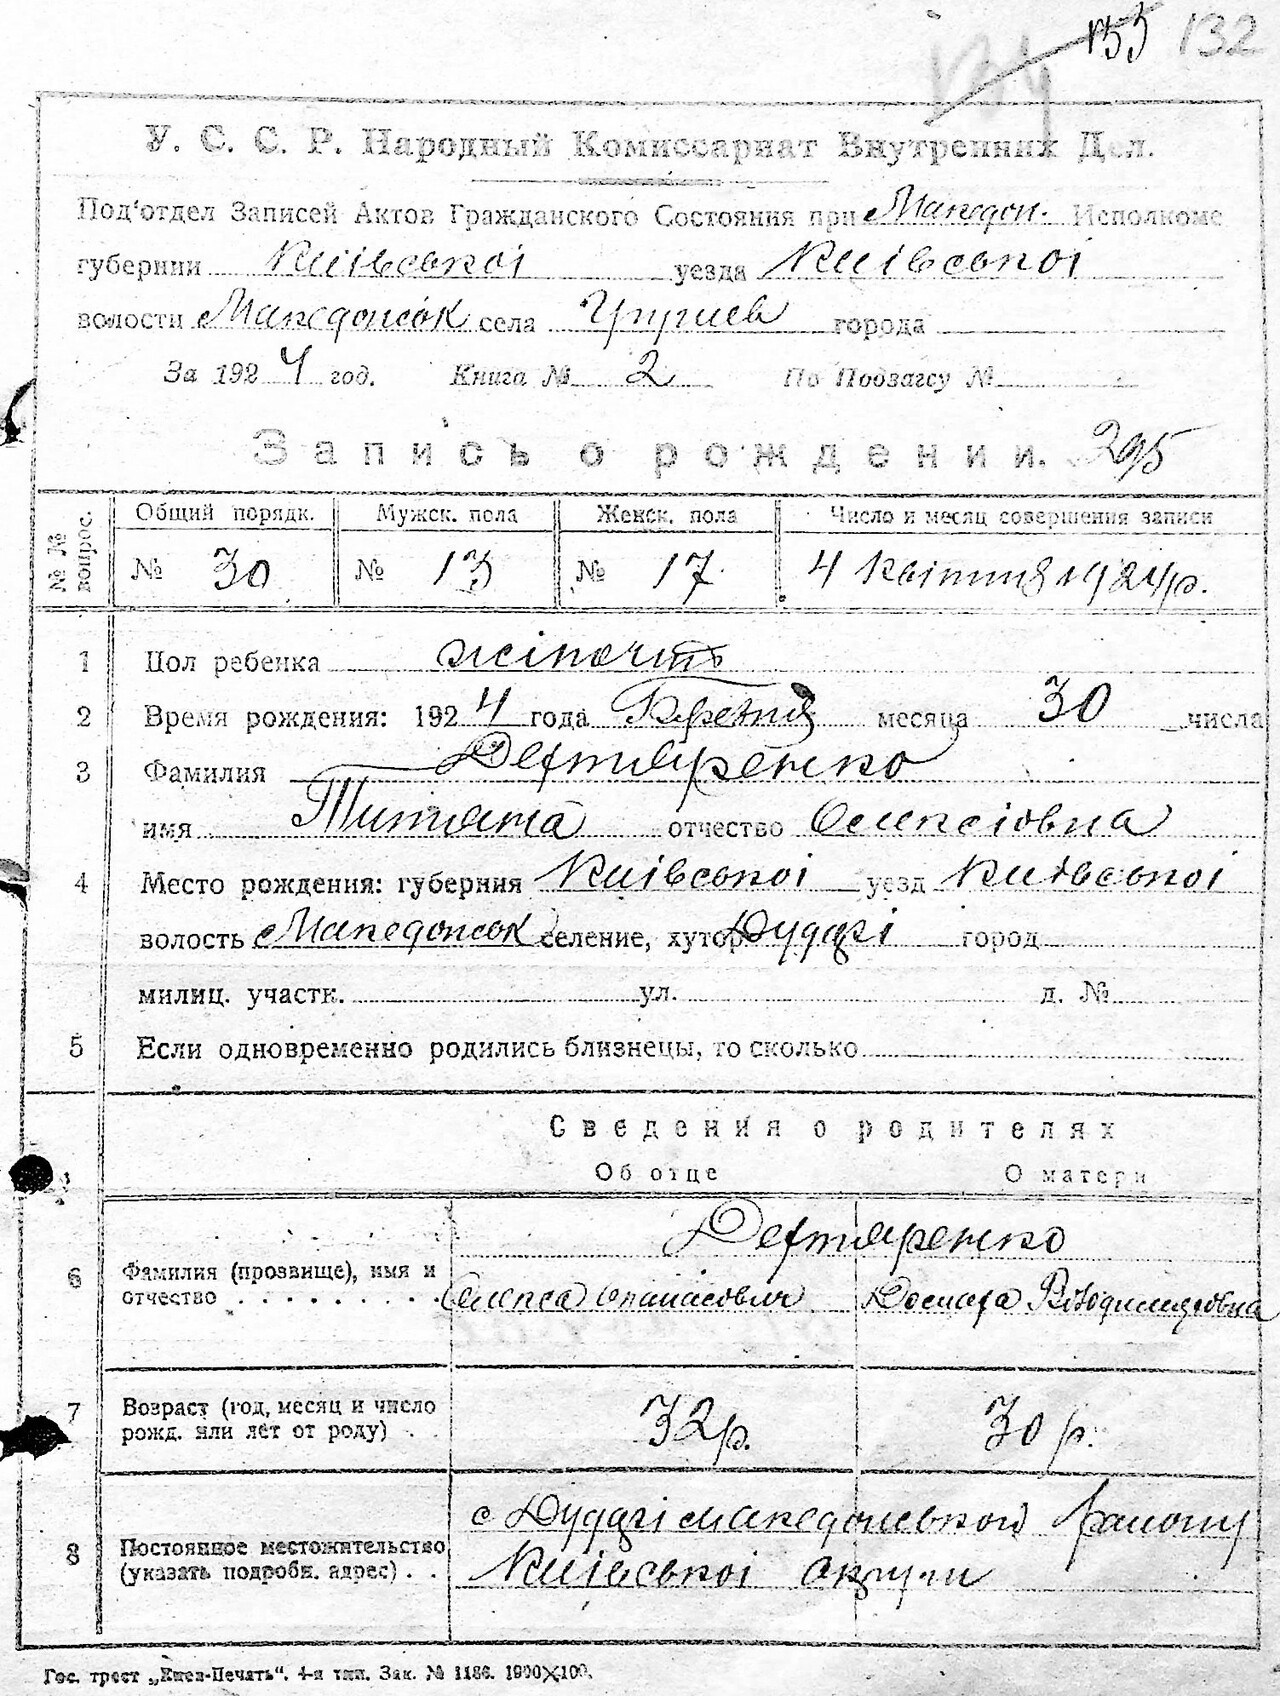 133 132
У. С. С. Р. Народный Комиссариат Внутренних Дел.
Под'отдел Записей Актов Гражданского Состояния при Македон. Исполкоме
губернии Київської уезда Київської
волости Македонськ села города
За 1924 год. Книга № 2 По Подзагсу №
Запись о рождении. 295
№ № вопрос. Общий порядк. Мужск. пола Женск. пола Число и месяц совершения записи
№ 30 № 13 № 17 4 Квітня 1924 р.
1 Пол ребенка
2 Время рождения: 1924 года месяца 30 числа
3 Фамилия Дехтяренко
имя Титяна отчество Олексіовна
4 Место рождения: губерния Київської уезд Київської
волость Македонськ селение, хутор Дударі город
милиц. участк. ул. д. №
5 Если одновременно родились близнецы, то сколько
Сведения о родителях
Об отце О матери
Дехтяренко
6 Фамилия (прозвище), имя и
отчество Олекса Опанасович
7 Возраст (год, месяц и число
рожд. или лет от роду) 32 р. 30 р.
с Дударі Македонської району
8 Постоянное местожительство
(указать подробн. адрес) Київської округи
Гос. трест „Киев-Печать“. 4-я тип. Зак. № 1186. 1900×100.